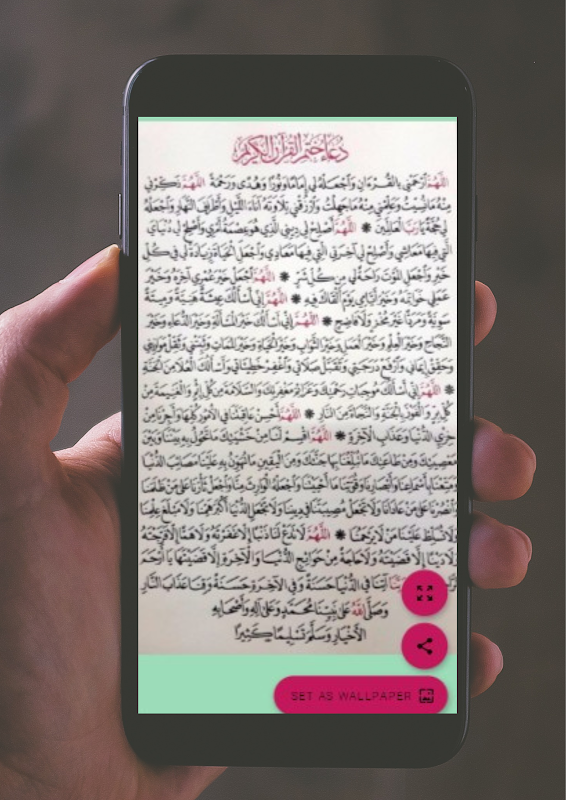 دُعَاءُ خَتْمِ الْقُرْآنِ الْكَرِيمِ
اللَّهُمَّ ارْحَمْنِي بِالْقُرْءَانِ وَاجْعَلْهُ لِي إِمَامًا وَنُورًا وَهُدًى وَرَحْمَةً اللَّهُمَّ ذَكِّرْنِي
مِنْهُ مَا نَسِيتُ وَعَلِّمْنِي مِنْهُ مَا جَهِلْتُ وَارْزُقْنِي تِلَاوَتَهُ آنَاءَ اللَّيْلِ وَأَطْرَافَ النَّهَارِ وَاجْعَلْهُ
لِي حُجَّةً يَا رَبَّ الْعَالَمِينَ * اللَّهُمَّ أَصْلِحْ لِي دِينِي الَّذِي هُوَ عِصْمَةُ أَمْرِي وَأَصْلِحْ لِي دُنْيَايَ
الَّتِي فِيهَا مَعَاشِي وَأَصْلِحْ لِي آخِرَتِي الَّتِي فِيهَا مَعَادِي وَاجْعَلِ الْحَيَاةَ زِيَادَةً لِي فِي كُلِّ
خَيْرٍ وَاجْعَلِ الْمَوْتَ رَاحَةً لِي مِنْ كُلِّ شَرٍّ * اللَّهُمَّ اجْعَلْ خَيْرَ عُمْرِي آخِرَهُ وَخَيْرَ
عَمَلِي خَوَاتِمَهُ وَخَيْرَ أَيَّامِي يَوْمَ أَلْقَاكَ فِيهِ * اللَّهُمَّ إِنِّي أَسْأَلُكَ عِيشَةً هَنِيَّةً وَمِيتَةً
سَوِيَّةً وَمَرَدًّا غَيْرَ مُخْزٍ وَلَا فَاضِحٍ * اللَّهُمَّ إِنِّي أَسْأَلُكَ خَيْرَ الْمَسْأَلَةِ وَخَيْرَ الدُّعَاءِ وَخَيْرَ
النَّجَاحِ وَخَيْرَ الْعِلْمِ وَخَيْرَ الْعَمَلِ وَخَيْرَ الثَّوَابِ وَخَيْرَ الْحَيَاةِ وَخَيْرَ الْمَمَاتِ وَثَبِّتْنِي وَثَقِّلْ مَوَازِينِي
وَحَقِّقْ إِيمَانِي وَارْفَعْ دَرَجَتِي وَتَقَبَّلْ صَلَاتِي وَاغْفِرْ خَطِيئَاتِي وَأَسْأَلُكَ الْعُلَا مِنَ الْجَنَّةِ
* اللَّهُمَّ إِنِّي أَسْأَلُكَ مُوجِبَاتِ رَحْمَتِكَ وَعَزَائِمَ مَغْفِرَتِكَ وَالسَّلَامَةَ مِنْ كُلِّ إِثْمٍ وَالْغَنِيمَةَ مِنْ
كُلِّ بِرٍّ وَالْفَوْزَ بِالْجَنَّةِ وَالنَّجَاةَ مِنَ النَّارِ * اللَّهُمَّ أَحْسِنْ عَاقِبَتَنَا فِي الْأُمُورِ كُلِّهَا وَأَجِرْنَا مِنْ
خِزْيِ الدُّنْيَا وَعَذَابِ الْآخِرَةِ * اللَّهُمَّ اقْسِمْ لَنَا مِنْ خَشْيَتِكَ مَا تَحُولُ بِهِ بَيْنَنَا وَبَيْنَ
مَعْصِيَتِكَ وَمِنْ طَاعَتِكَ مَا تُبَلِّغُنَا بِهَا جَنَّتَكَ وَمِنَ الْيَقِينِ مَا تُهَوِّنُ بِهِ عَلَيْنَا مَصَائِبَ الدُّنْيَا
وَمَتِّعْنَا بِأَسْمَاعِنَا وَأَبْصَارِنَا وَقُوَّتِنَا مَا أَحْيَيْتَنَا وَاجْعَلْهُ الْوَارِثَ مِنَّا وَاجْعَلْ ثَأْرَنَا عَلَى مَنْ ظَلَمَنَا
وَانْصُرْنَا عَلَى مَنْ عَادَانَا وَلَا تَجْعَلْ مُصِيبَتَنَا فِي دِينِنَا وَلَا تَجْعَلِ الدُّنْيَا أَكْبَرَ هَمِّنَا وَلَا مَبْلَغَ عِلْمِنَا
وَلَا تُسَلِّطْ عَلَيْنَا مَنْ لَا يَرْحَمُنَا * اللَّهُمَّ لَا تَدَعْ لَنَا ذَنْبًا إِلَّا غَفَرْتَهُ وَلَا هَمًّا إِلَّا فَرَّجْتَهُ
وَلَا دَيْنًا إِلَّا قَضَيْتَهُ وَلَا حَاجَةً مِنْ حَوَائِجِ الدُّنْيَا وَالْآخِرَةِ إِلَّا قَضَيْتَهَا يَا أَرْحَمَ
آتِنَا فِي الدُّنْيَا حَسَنَةً وَفِي الْآخِرَةِ حَسَنَةً وَقِنَا عَذَابَ النَّارِ
وَصَلَّى اللَّهُ عَلَى نَبِيِّنَا مُحَمَّدٍ وَعَلَى آلِهِ وَأَصْحَابِهِ
الْأَخْيَارِ وَسَلَّمَ تَسْلِيمًا كَثِيرًا
SET AS WALLPAPER